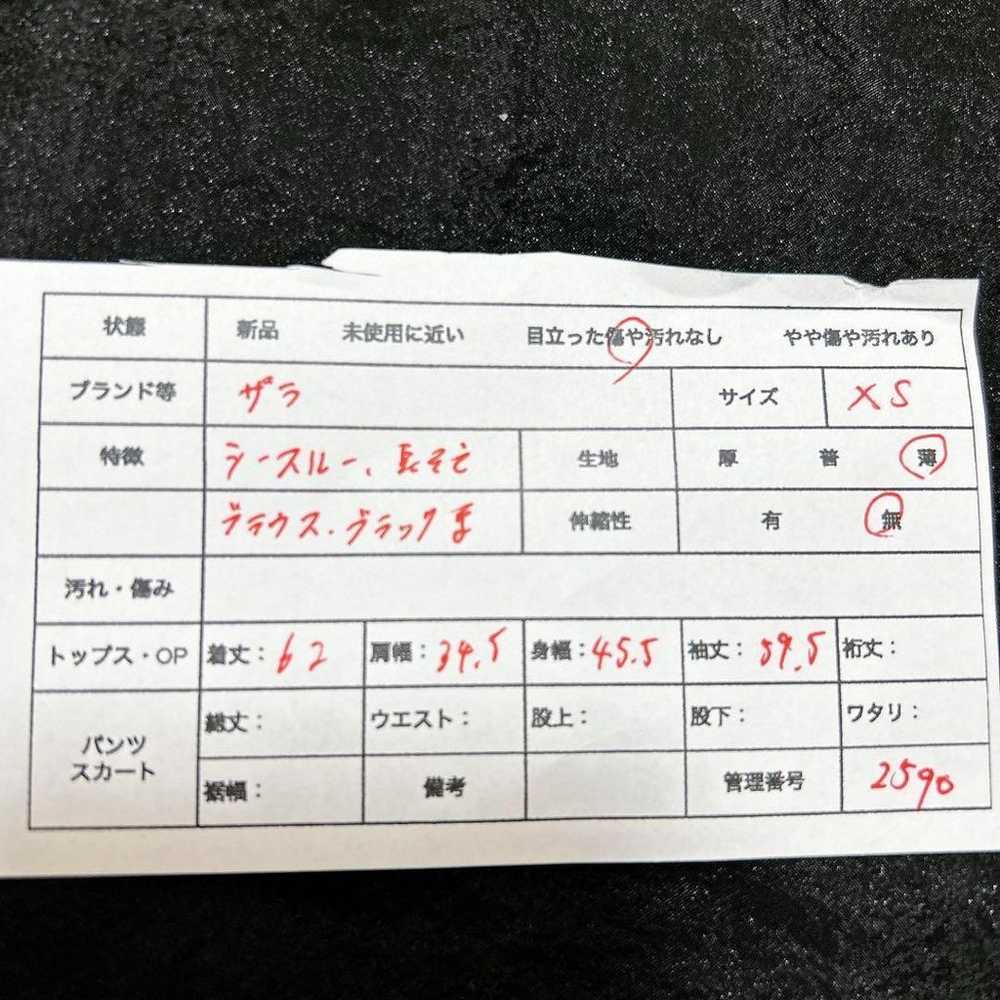 状態 新品 未使用に近い 目立った傷や汚れなし やや傷や汚れあり
ブランド等 ザラ サイズ XS
特徴 シースルー、長そで 生地 厚 普 薄
ブラウス、ブラック 伸縮性 有 無
汚れ・傷み
トップス・OP 着丈:62 肩幅:34.5 身幅:45.5 袖丈:59.5 裄丈:
パンツ 総丈: ウエスト: 股上: 股下: ワタリ:
スカート 裾幅: 備考 管理番号 2590